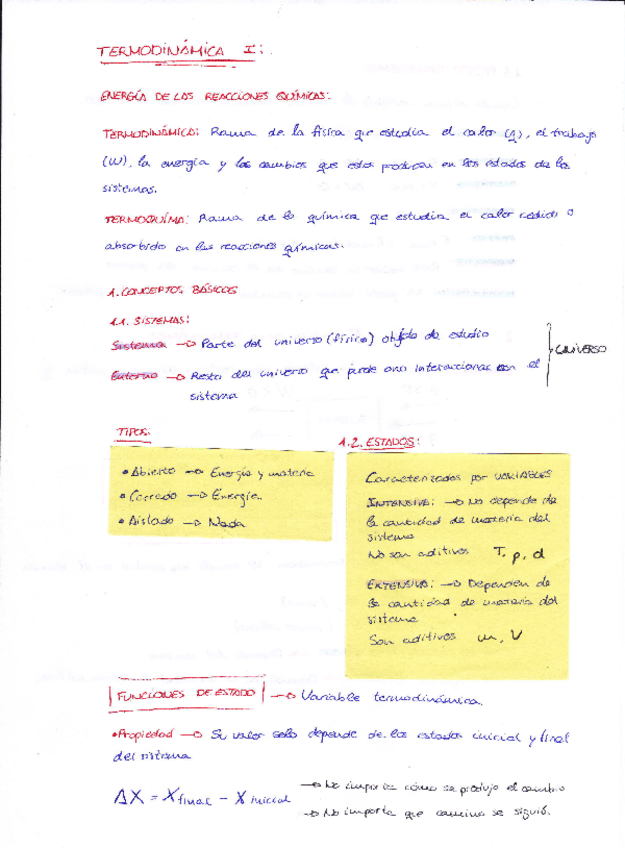 TERMODINÁMICA I:
ENERGÍA DE LAS REACCIONES QUÍMICAS:
TERMODINÁMICA: Rama de la física que estudia el calor (Q), el trabajo
(W), la energía y los cambios que estos producen en los estados de los
sistemas.
TERMOQUÍMA: Rama de la química que estudia el calor cedido o
absorbido en las reacciones químicas.
1. CONCEPTOS BÁSICOS
1.1. SISTEMAS:
Sistema → Parte del universo (físico) objeto de estudio
Entorno → Resto del universo que puede o no interaccionar con el
sistema
UNIVERSO
TIPOS:
• Abierto → Energía y materia
• Cerrado → Energía.
• Aislado → Nada
1.2. ESTADOS:
Caracterizados por VARIABLES
INTENSIVA: → No depende de
la cantidad de materia del
sistema
No son aditivos T, p, d
EXTENSIVA: → Dependen de
la cantidad de materia del
sistema
Son aditivos m, V
FUNCIONES DE ESTADO → Variable termodinámica.
• Propiedad → Su valor solo depende de los estados inicial y final
del sistema
ΔX = X final - X inicial
→ No importa cómo se produjo el cambio
→ No importa que camino se siguió.